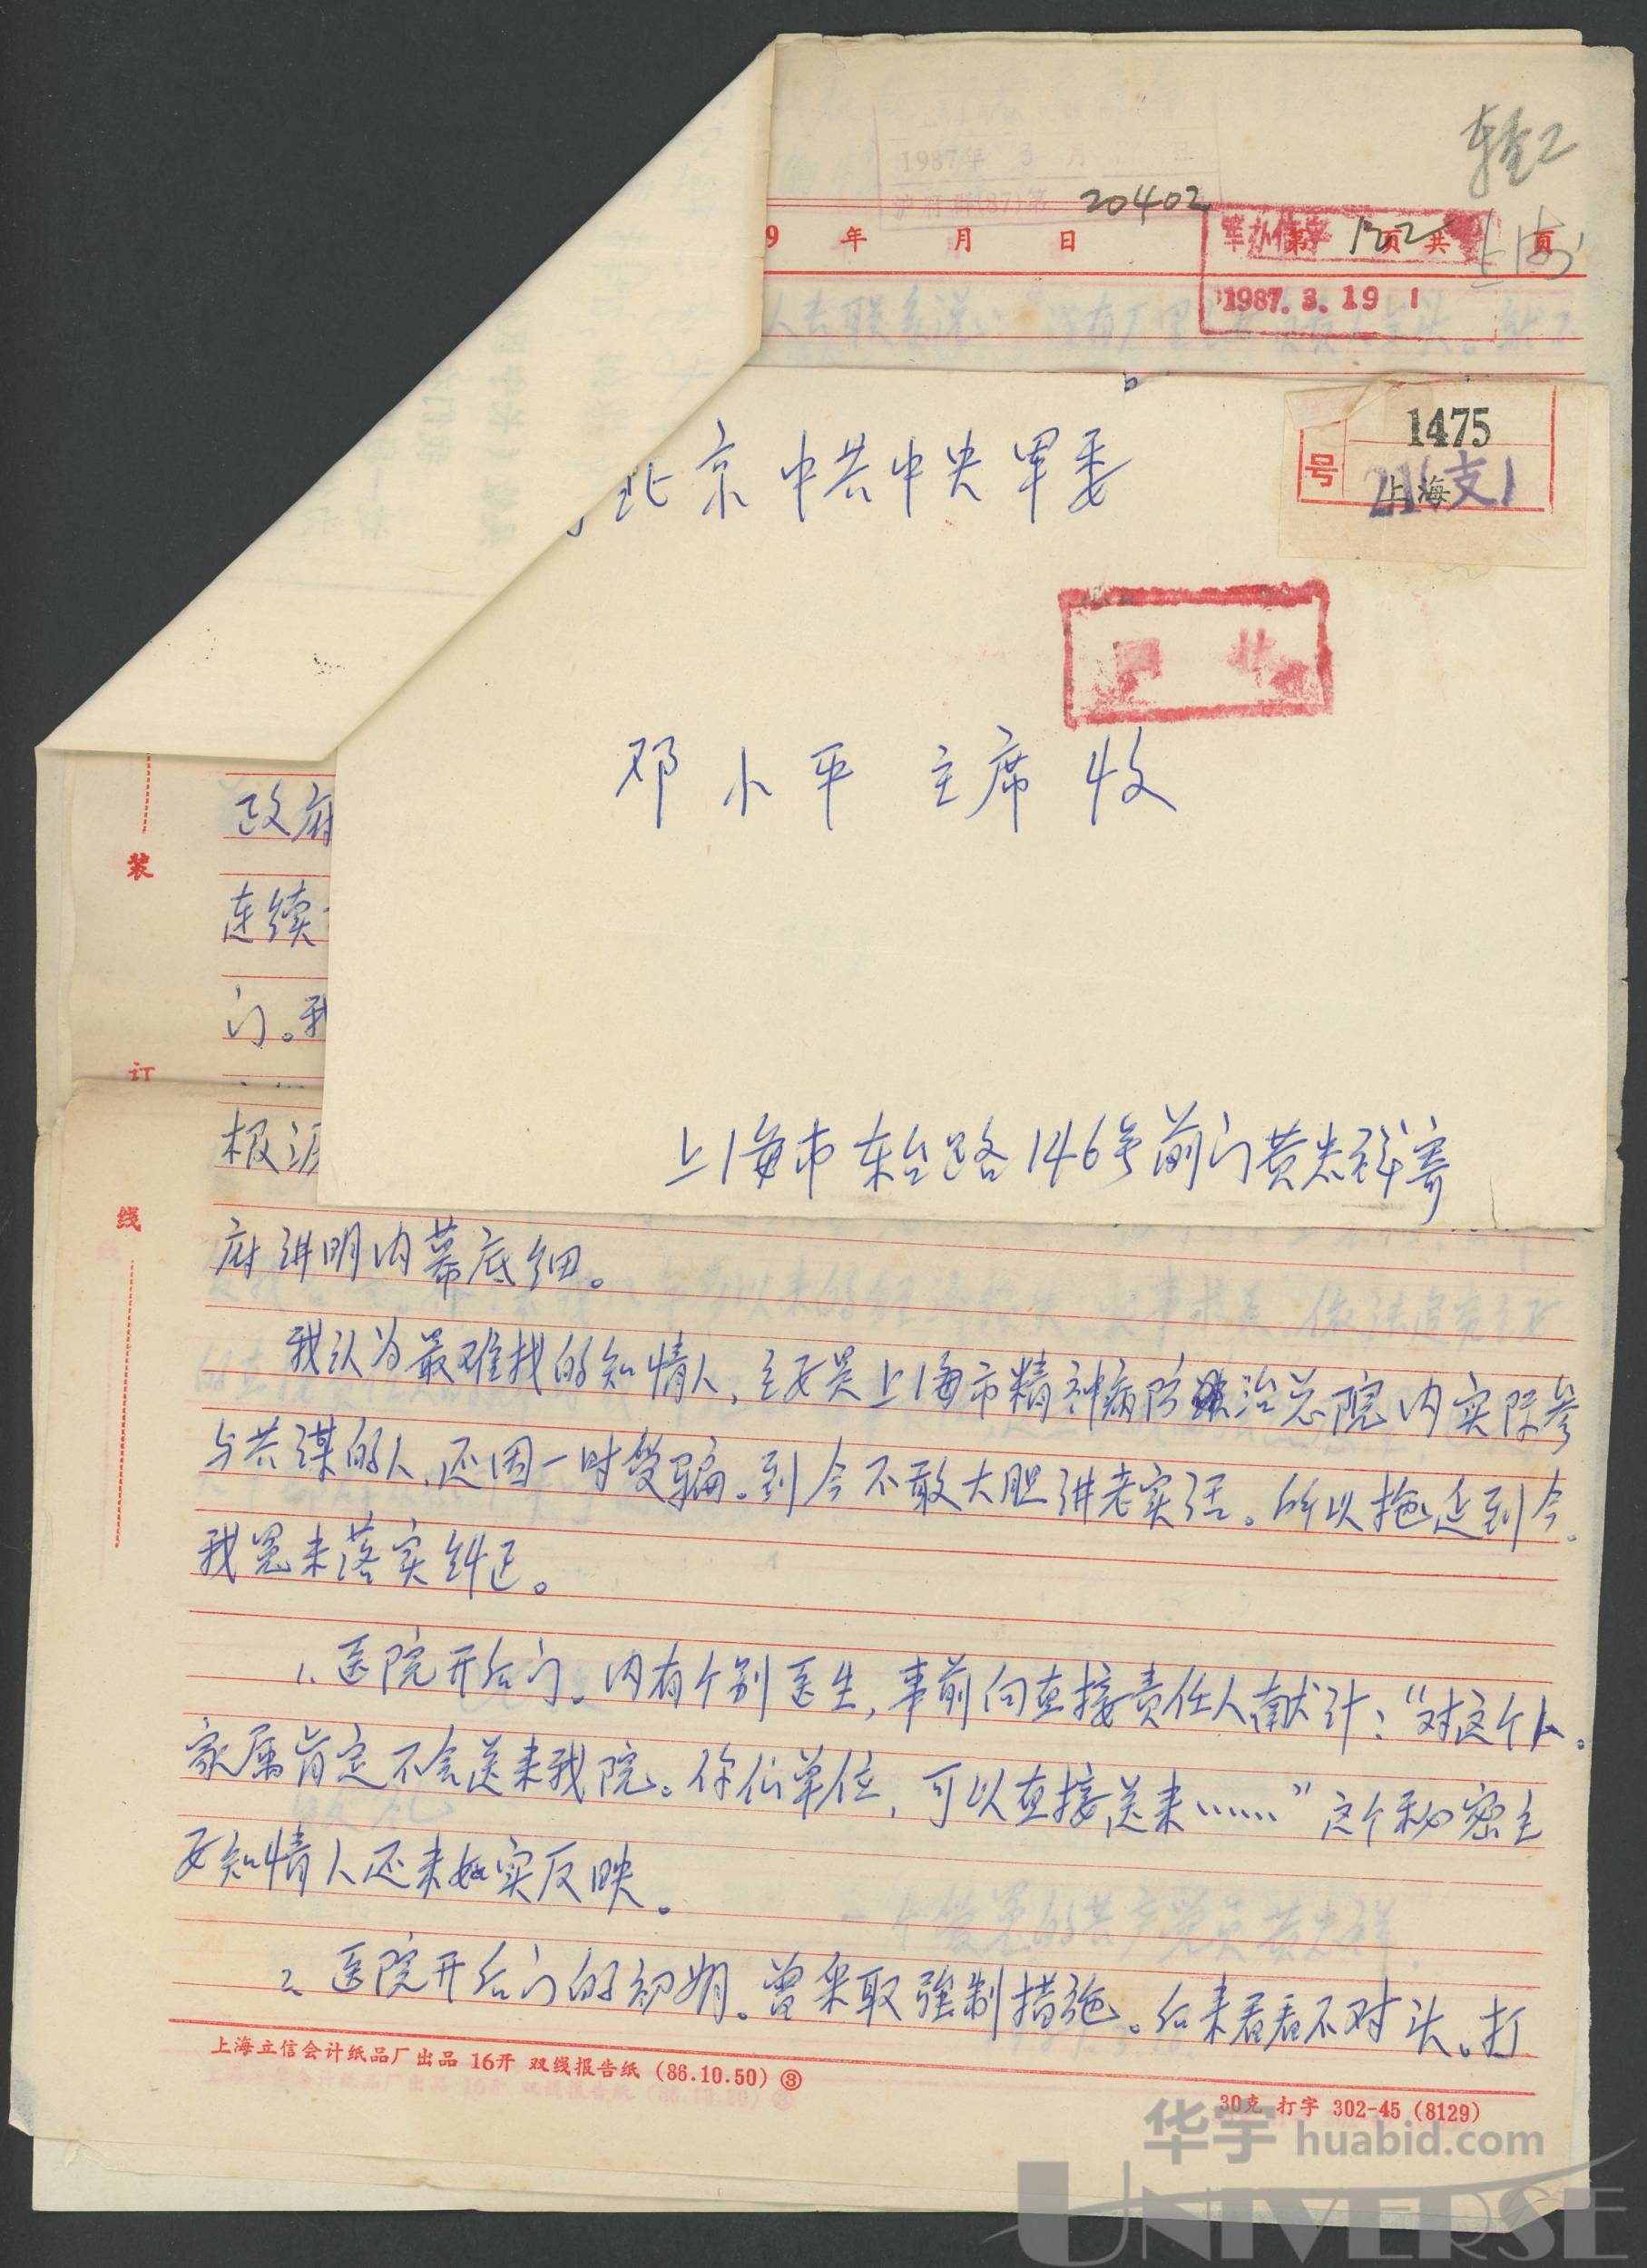 20402
年 月 日 第 页 共 页
1987.3.19
1475
号
上海
21(支)
北京中共中央军委
邓小平 主席 收
上海市东台路146号前门黄忠祥寄
装
订
线
政府
连续
门。我
根源
府讲明内幕底细。
我认为最难找的知情人,主要是上海市精神病防治总院内实际参
与共谋的人,还因一时受骗。到今不敢大胆讲老实话。所以拖延到今。
我冤未落实纠正。
1. 医院开后门。内有个别医生,事前向直接责任人献计:“对这个人。
家属肯定不会送来我院。你们单位,可以直接送来……”这个秘密主
要知情人还未如实反映。
2. 医院开后门的初期。曾采取强制措施。后来看看不对头。打
上海立信会计纸品厂出品 16开 双线报告纸 (86.10.50) ③
30克 打字 302-45 (8129)
华宇 huabid.com
UNIVERSE